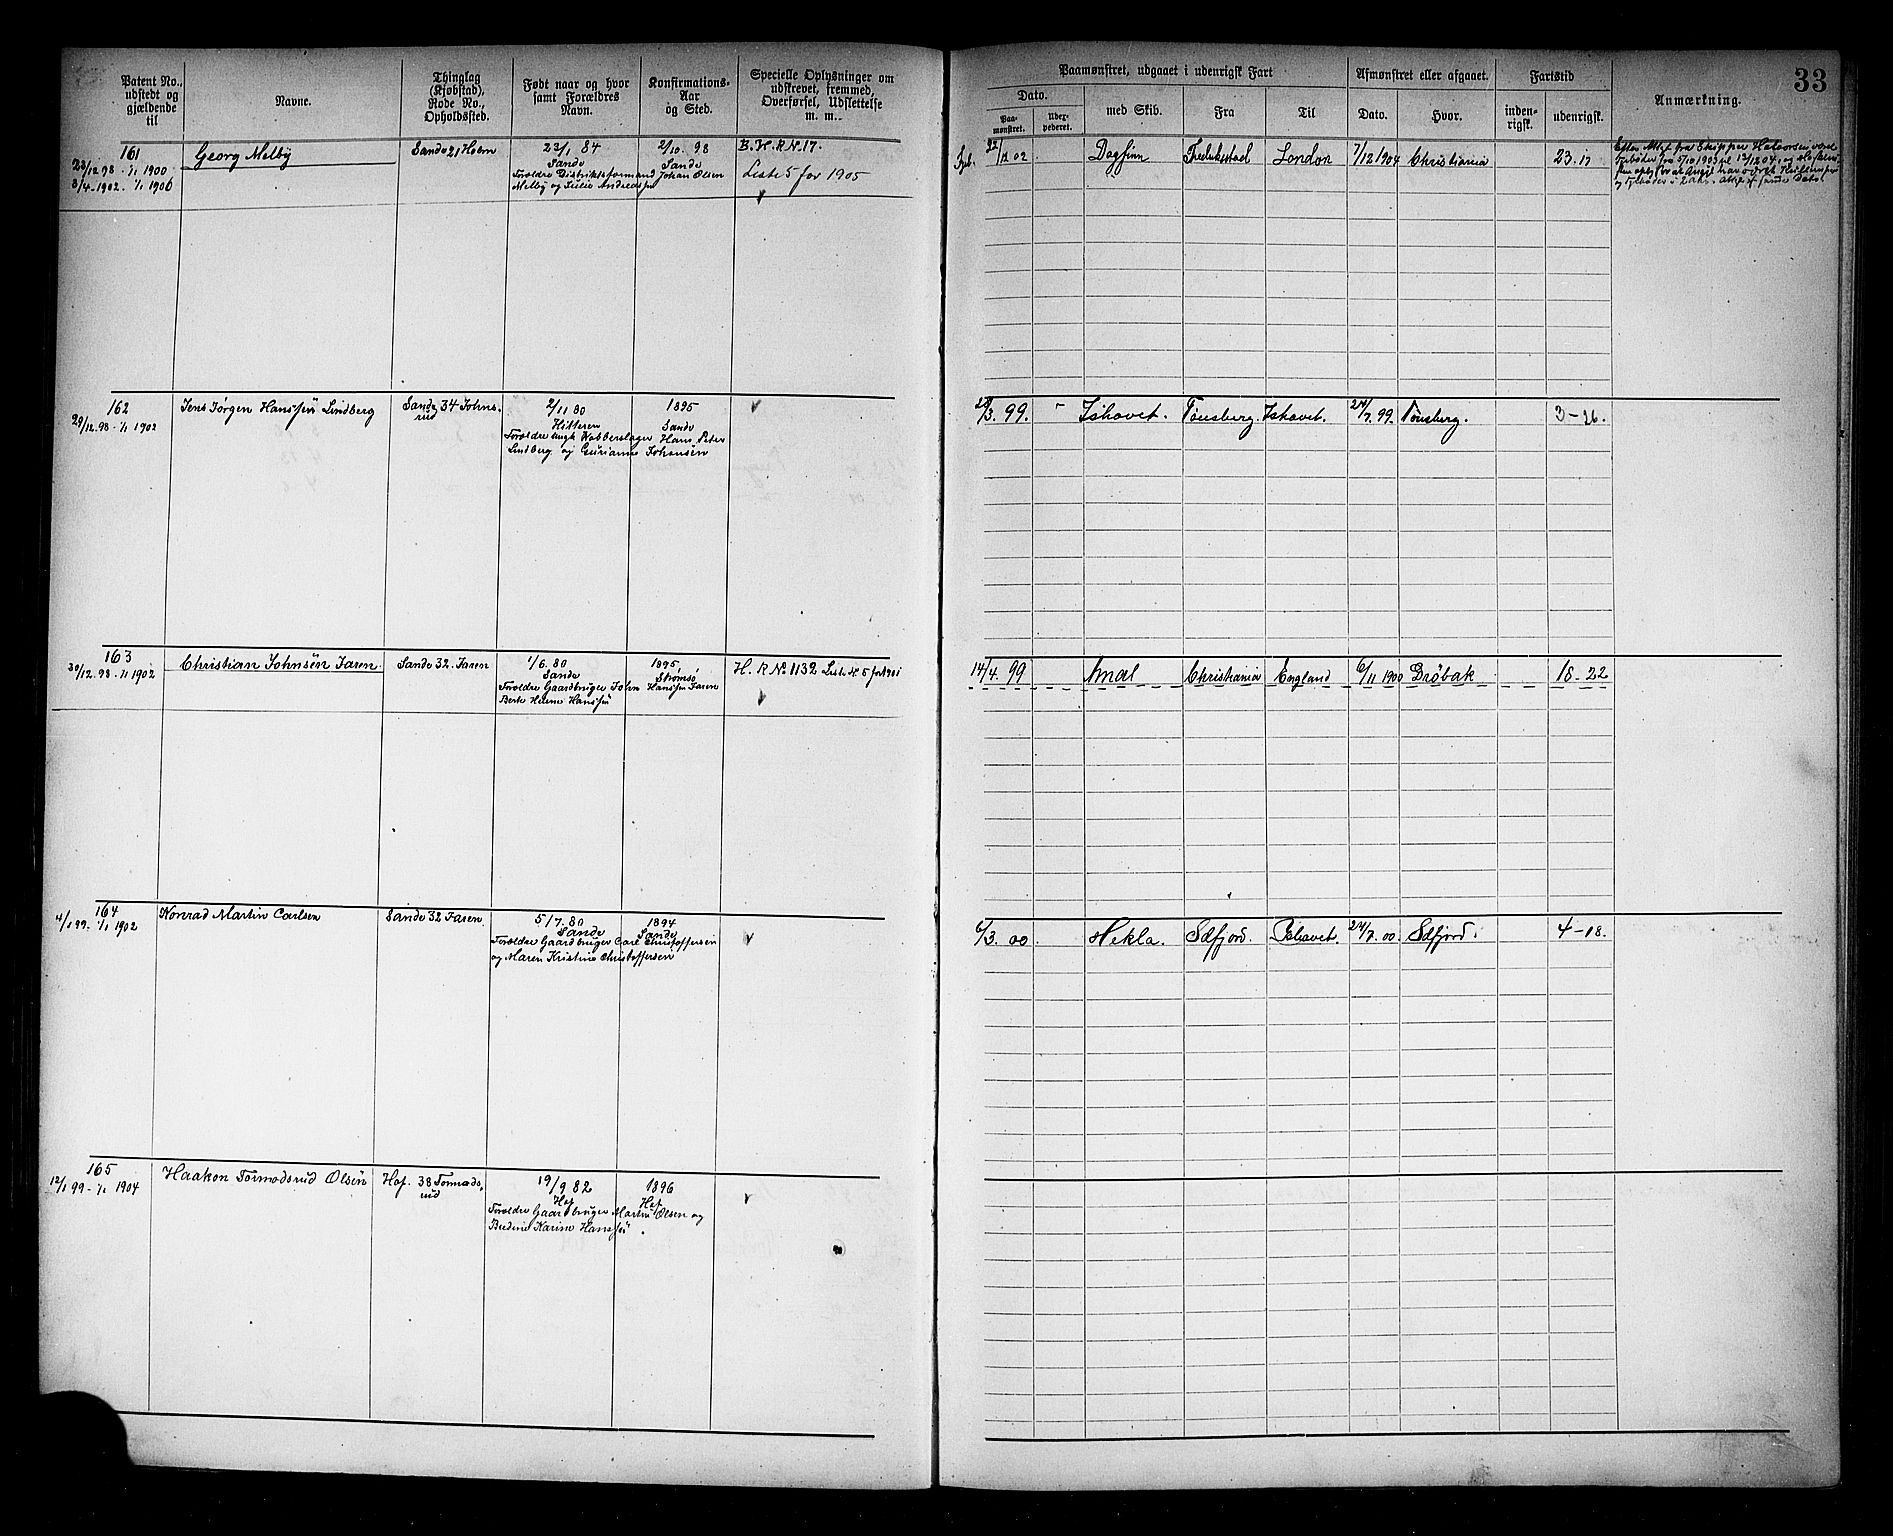 33
Patent No., udstedt og gjældende til
Navne.
Thinglag (Kjøbstad), Rode No., Opholdssted.
Født naar og hvor samt Forældres Navn.
Konfirmations-Aar og Sted.
Specielle Oplysninger om udskrevet, fremmed, Overførsel, Udslettelse m. m.
Paamønstret, udgaaet i udenrigsk Fart
Dato.
Paa-mønstret.
Udex-pederet.
med Skib.
Fra
Til
Afmønstret eller afgaaet.
Dato.
Hvor.
Fartstid
inden-rigsk.
udenrigsk.
Anmærkning.
161
Georg Melby
Sande 21 Holm
23/1 84
2/10. 98
B. H. R N. 17.
12 02
Dagfinn
Fredriksstad
London
7/12 1904
Christiania
23. 17
Sande
Sande
1/1 1900
Forældre Distriktsformand Johan Olsen
Liste 5 for 1905
3/4. 1902. 1/1 1906
Melby og
162
Jens Jørgen Hanssøn Lindberg
Sande 34 Johns
rud
2/11 80
1895
99.
Ishavet.
Tønsberg.
Ishavet.
24/7. 99.
Tønsberg.
3-26.
29/12. 98 - 1/1 1902
Hitteren
Sande
Forældre Kobberslager Hans Peter
Lindberg og Johansen
163
Christian Johnsen Jaren
Sande 32. Jaren
1/6. 80
1895
H. R No 1132 Liste N. 5 for 1901
14/4. 99
Christiania
England
6/11 1900
Drøbak
18-22
30/12. 98. 1/1 1902
Sande
Strømsø
Forældre Gaardbruger John Hanssen Jaren
Berte Helene Hanssøn
164
Konrad Martin Carlsen
Sande 32 Jaren
5/7. 80
1894
6/3. 00
Hekla.
Sdfjord.
Ishavet.
24/7. 00.
Sdfjord.
4-18.
4/1 99. 1/1 1902
Sande
Sande
Forældre Gaardbruger Carl Christoffersen
og Maren Kristine Christoffersen
165
Haakon Tormodsrud Olsen
Hof. 38 Tormods
rud
19/9 82
1896
12/1 99 - 1/1 1904
Hof
Hof
Forældre Gaardbruger Martin Olsen og
Karine Hanssøn